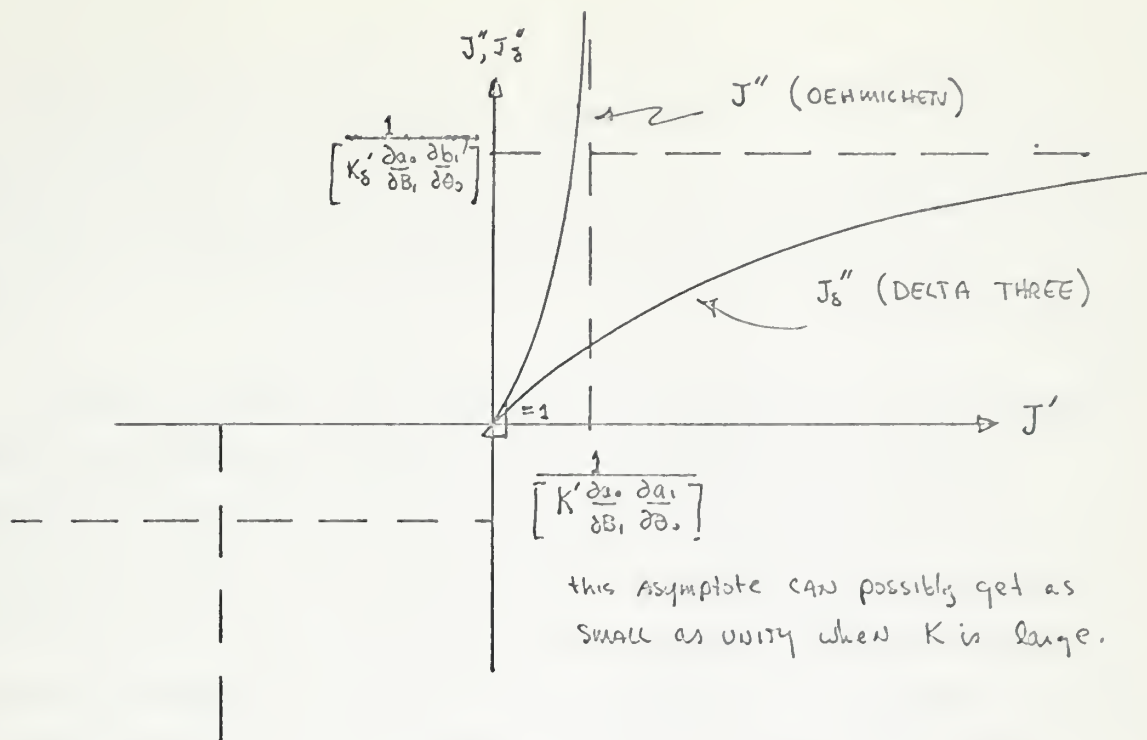 J", Jδ"
J" (OEHMICHEN)
1
[Kδ' ∂a₀/∂B₁ ∂b₁/∂θ₀]
Jδ" (DELTA THREE)
=1
J'
1
[K' ∂a₀/∂B₁ ∂a₁/∂θ₀]
this Asymptote CAN possibly get as
SMALL as UNITY when K is large.